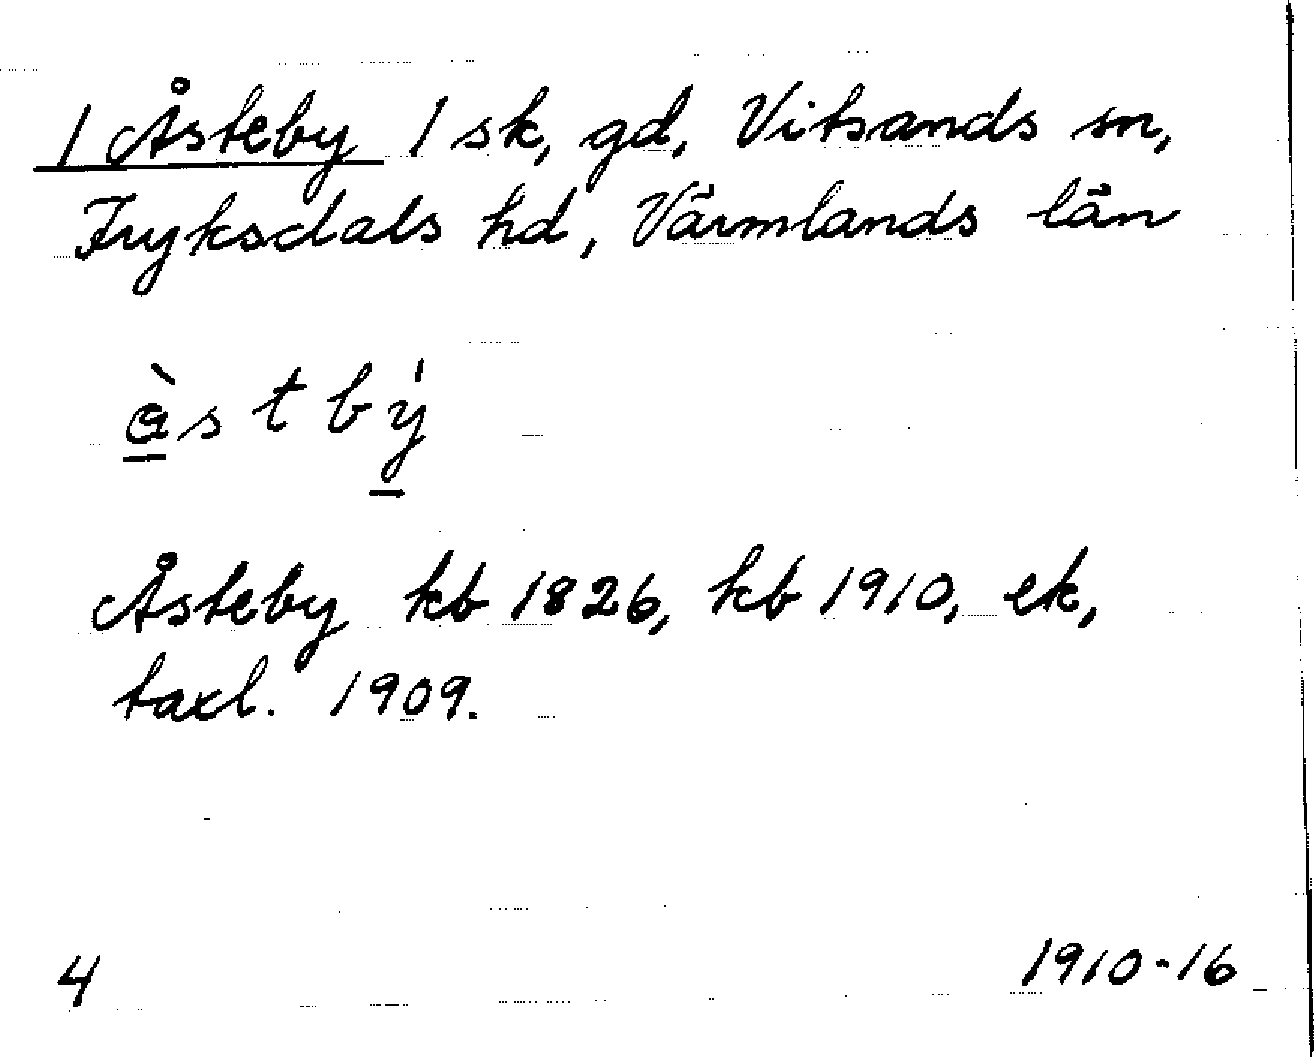 1 Åsteby 1 sk, gd, Vitsands sn,
Fryksdals hd, Värmlands län
à̱stbý̱
Åsteby kb 1826, kb 1910, ek,
taxl. 1909.
4
1910-16